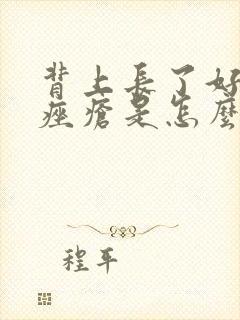 背上長了好
痤瘡是怎麼
程平